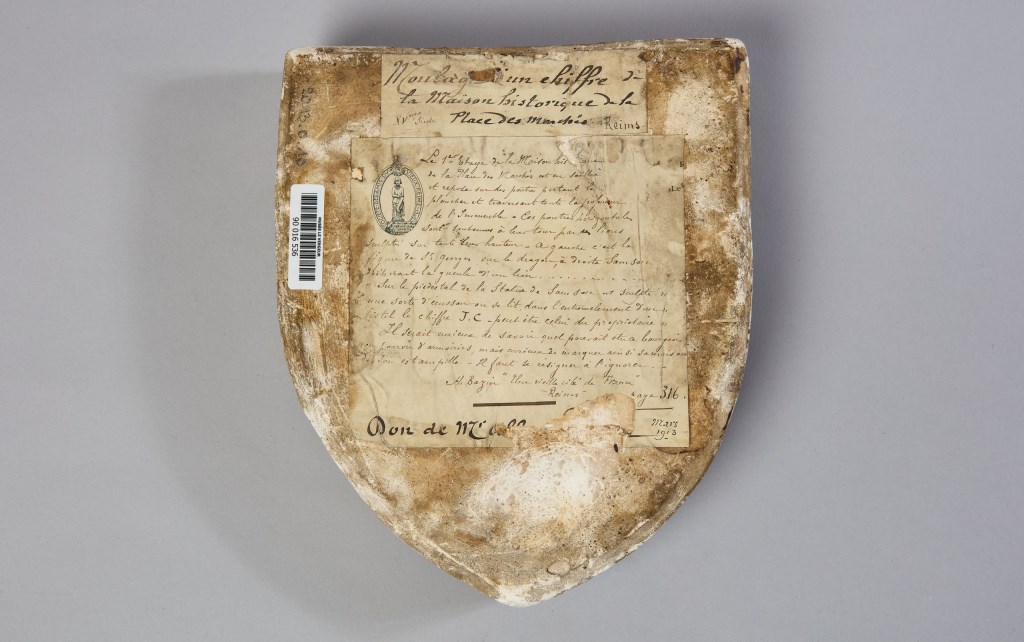 Moulage d'un chiffre de
la Maison historique de la
Place des Marchés Reims
XVme Siècle
Le 1er Etage de la Maison his
de la Place des Marchés est en saillie
et repose sur des poutres portant le
plancher et traversant toute la
de l'Immeuble. Ces poutres horizontales
sont soutenues à leur tour par des liens
sculptés sur toute leur hauteur. A gauche c'est la
figure de St Georges sur le dragon, à droite Samson
déchirant la gueule d'un lion
Sur le piédestal de la Statue de Samson est sculpté
une sorte d'écusson ou se lit dans l'entrelacement d'un
le chiffre J.C. peut être celui du propriétaire
Il serait curieux de savoir quel pouvait être ce bourgeois
d'armoiries, mais curieux de marquer ainsi sa maison
son estampille. Il faut se résigner à l'ignorer
H. Bazin "Une vieille cité de France"
Reims page 316.
Don de Mr
Mars
1913
90 016 536